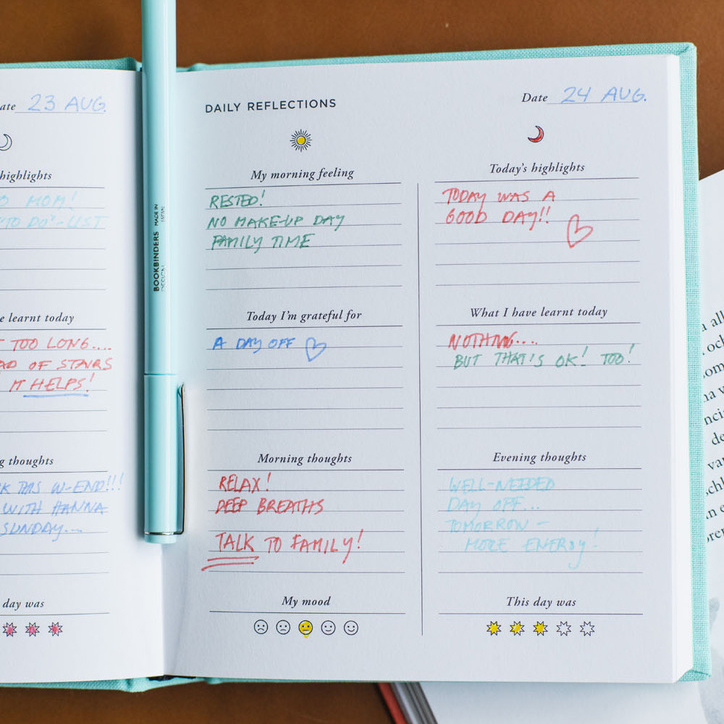 ate 23 AUG.
highlights
O MOM!
TO DO'-LIST
e learnt today
T TOO LONG....
AD OF STAIRS
IT HELPS!
g thoughts
K THIS W-END!!!
WITH HANNA
SUNDAY...
day was
BOOKBINDERS
MADE IN
DAILY REFLECTIONS
Date 24 AUG.
My morning feeling
RESTED!
NO MAKE-UP DAY
FAMILY TIME
Today I'm grateful for
A DAY OFF
Morning thoughts
RELAX!
DEEP BREATHS
TALK TO FAMILY!
My mood
Today's highlights
TODAY WAS A
GOOD DAY!!
What I have learnt today
NOTHING....
BUT THAT'S OK! TOO!
Evening thoughts
WELL-NEEDED
DAY OFF...
TOMORROW -
MORE ENERGY!
This day was